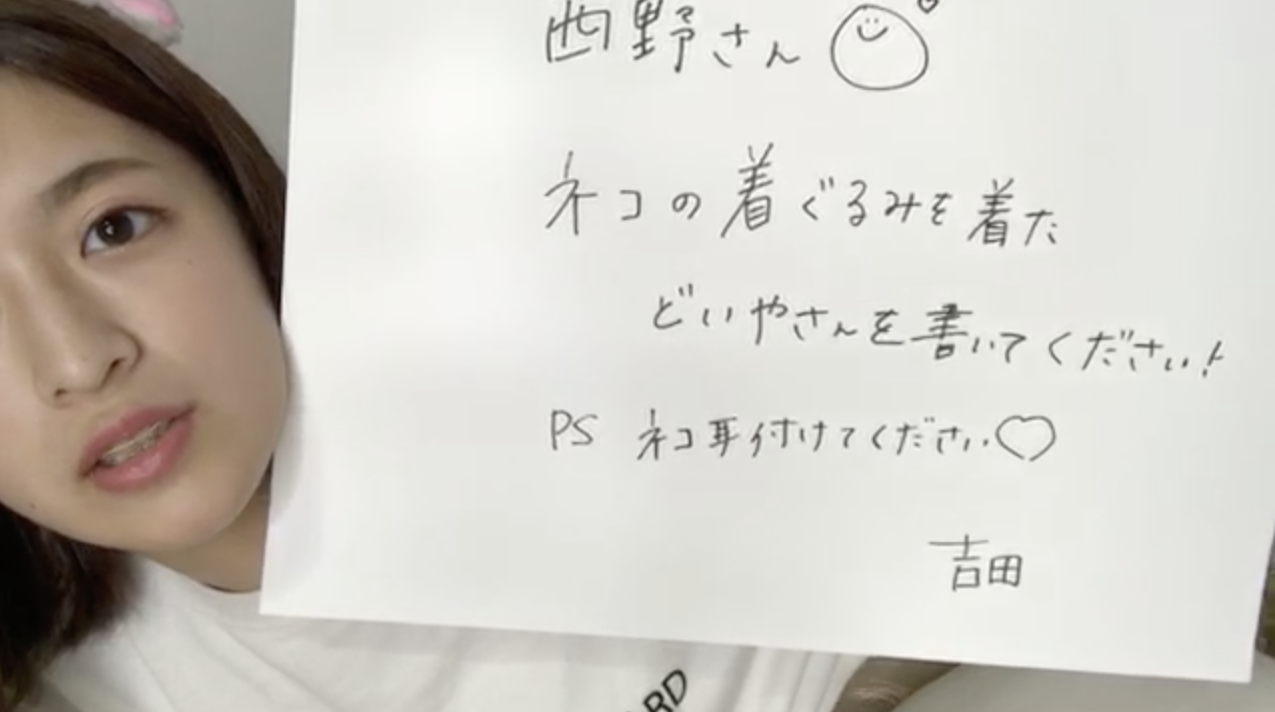 西野さん
ネコの着ぐるみを着た
どいやさんを書いてください!
PS ネコ耳付けてください♡
吉田